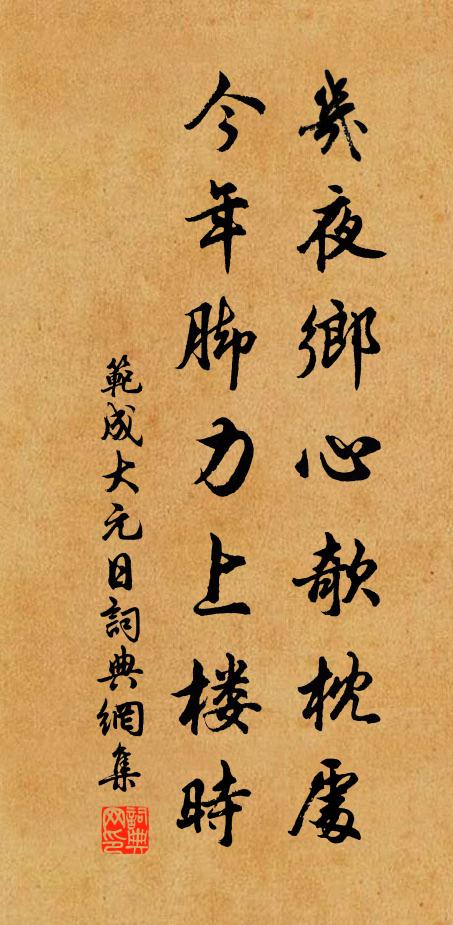 幾夜鄉心欹枕處
今年腳力上樓時
範成大元日詞典網集
詞典网印